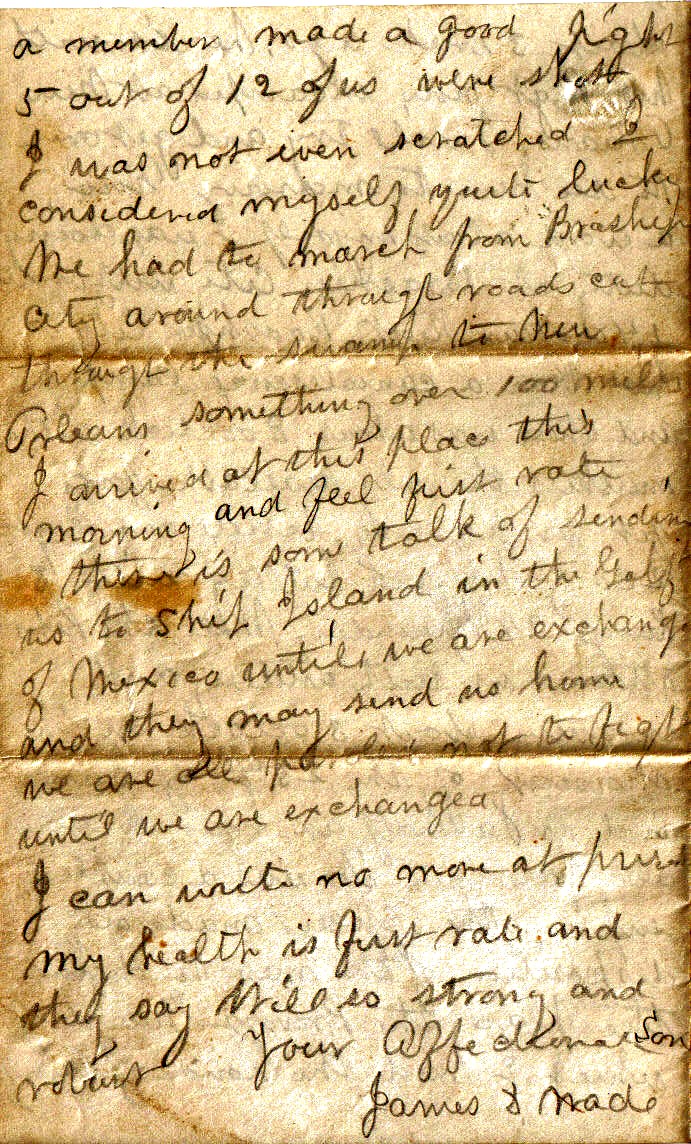 a member made a good fight
5 out of 12 of us were shot
I was not even scratched I
considered myself quite lucky
We had to march from Brashif
City around through roads cut
through the swamp to New
Orleans something over 100 miles
I arrived at this place this
morning and feel first rate
there is some talk of sending
us to Ship Island in the Golf
of Mexico until we are exchange
and they may send us home
we are all parolled not to fight
until we are exchanged
I can write no more at present
my health is first rate and
they say Will so strong and
robust Your Affectionate Son
James D Wade